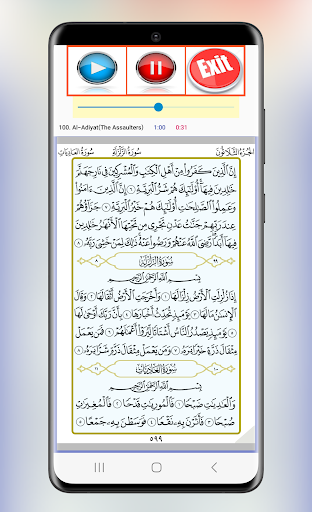 Exit
100. Al-Adiyat(The Assaulters) 1:00 0:31
الجُزْءُ الثَّلَاثُونَ سُورَةُ الزَّلْزَلَةِ سُورَةُ العَادِيَاتِ
إِنَّ ٱلَّذِينَ كَفَرُوا۟ مِنْ أَهْلِ ٱلْكِتَٰبِ وَٱلْمُشْرِكِينَ فِى نَارِ جَهَنَّمَ
خَٰلِدِينَ فِيهَآ أُو۟لَٰٓئِكَ هُمْ شَرُّ ٱلْبَرِيَّةِ ٦ إِنَّ ٱلَّذِينَ ءَامَنُوا۟
وَعَمِلُوا۟ ٱلصَّٰلِحَٰتِ أُو۟لَٰٓئِكَ هُمْ خَيْرُ ٱلْبَرِيَّةِ ٧ جَزَآؤُهُمْ
عِندَ رَبِّهِمْ جَنَّٰتُ عَدْنٍ تَجْرِى مِن تَحْتِهَا ٱلْأَنْهَٰرُ خَٰلِدِينَ
فِيهَآ أَبَدًا رَّضِىَ ٱللَّهُ عَنْهُمْ وَرَضُوا۟ عَنْهُ ذَٰلِكَ لِمَنْ خَشِىَ رَبَّهُۥ ٨
٩٩ سُورَةُ الزَّلْزَلَةِ ٨
بِسْمِ ٱللَّهِ ٱلرَّحْمَٰنِ ٱلرَّحِيمِ
إِذَا زُلْزِلَتِ ٱلْأَرْضُ زِلْزَالَهَا ١ وَأَخْرَجَتِ ٱلْأَرْضُ أَثْقَالَهَا ٢ وَقَالَ
ٱلْإِنسَٰنُ مَا لَهَا ٣ يَوْمَئِذٍ تُحَدِّثُ أَخْبَارَهَا ٤ بِأَنَّ رَبَّكَ أَوْحَىٰ لَهَا
٥ يَوْمَئِذٍ يَصْدُرُ ٱلنَّاسُ أَشْتَاتًا لِّيُرَوْا۟ أَعْمَٰلَهُمْ ٦ فَمَن يَعْمَلْ
مِثْقَالَ ذَرَّةٍ خَيْرًا يَرَهُۥ ٧ وَمَن يَعْمَلْ مِثْقَالَ ذَرَّةٍ شَرًّا يَرَهُۥ ٨
١٠٠ سُورَةُ العَادِيَاتِ ١١
بِسْمِ ٱللَّهِ ٱلرَّحْمَٰنِ ٱلرَّحِيمِ
وَٱلْعَٰدِيَٰتِ ضَبْحًا ١ فَٱلْمُورِيَٰتِ قَدْحًا ٢ فَٱلْمُغِيرَٰتِ
صُبْحًا ٣ فَأَثَرْنَ بِهِۦ نَقْعًا ٤ فَوَسَطْنَ بِهِۦ جَمْعًا ٥
٥٩٩